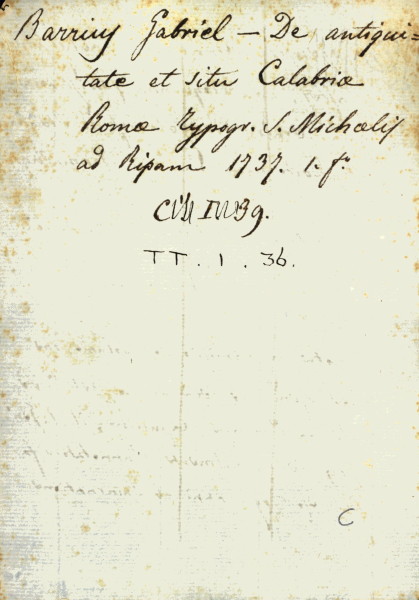 Barrius Gabriel – De antiqui=
tate et situ Calabriæ
Romæ typogr. S. Michaelis
ad Ripam 1737. 1. fº
TT . 1 . 36.
C